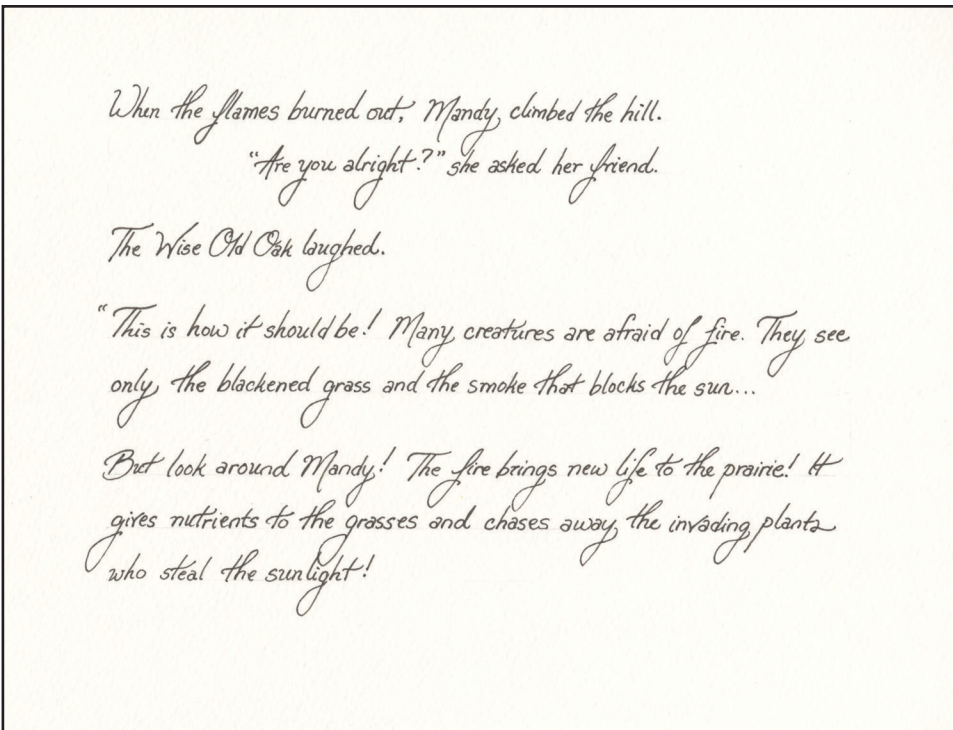 When the flames burned out, Mandy climbed the hill.
"Are you alright?" she asked her friend.
The Wise Old Oak laughed.
"This is how it should be! Many creatures are afraid of fire. They see
only the blackened grass and the smoke that blocks the sun...
But look around Mandy! The fire brings new life to the prairie! It
gives nutrients to the grasses and chases away the invading plants
who steal the sunlight!